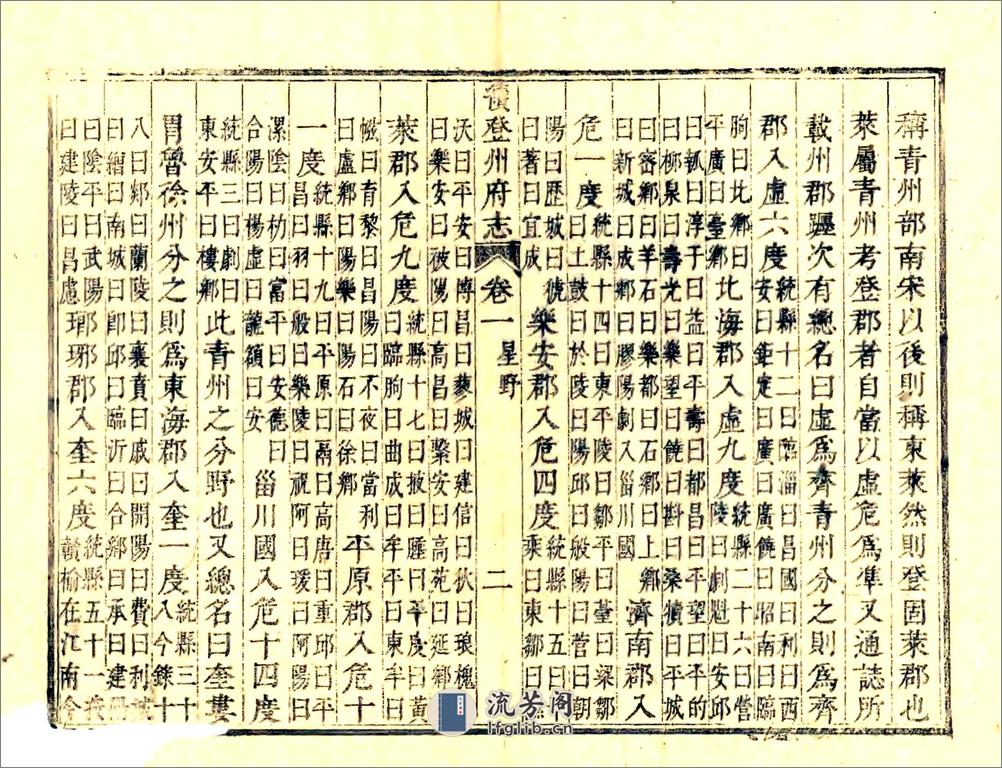 稱青州部南宋以後則稱東萊然則登固萊郡也
萊屬青州考登郡者自當以虛危為準又通誌所
載州郡躔次有總名曰虛為齊青州分之則為齊
郡入虛六度統縣十二曰臨淄曰昌國曰利曰西安曰鉅定曰廣曰廣饒曰昭南曰臨
朐曰北鄉曰平廣曰臺鄉北海郡入虛九度統縣二十六曰營陵曰劇魁曰安邱
曰瓡曰淳于曰益曰平壽曰都昌曰平望曰平的曰柳泉曰壽光曰樂望曰饒曰斟曰桑犢曰平城
曰密鄉曰羊石曰樂都曰石鄉曰上鄉曰新城曰成鄉曰膠陽劇入甾川國濟南郡入
危一度統縣十四曰東平陵曰鄒平曰臺曰梁鄒曰土鼓曰於陵曰陽邱曰般陽曰菅曰朝
陽曰歷城曰猇曰著曰宜成樂安郡入危四度統縣十五曰乘曰東鄒曰
續登州府志 卷一 星野 二
沃曰平安曰博昌曰蓼城曰建信曰狄曰琅槐曰樂安曰被陽曰高昌曰繁安曰高苑曰延鄉
萊郡入危九度統縣十七曰掖曰腄曰平度曰黃曰臨朐曰曲成曰牟平曰東牟曰
㡉曰育黎曰昌陽曰不夜曰當利曰盧鄉曰陽樂曰陽石曰徐鄉平原郡入危十
一度統縣十九曰平原曰鬲曰高唐曰重邱曰平昌曰羽曰般曰樂陵曰祝阿曰瑗曰阿陽曰
漯陰曰朸曰富平曰安德曰合陽曰樓虛曰龍頟曰安甾川國入危十四度
統縣三曰劇曰東安平曰樓鄉此青州之分野也又總名曰奎婁
胃魯徐州分之則為東海郡入奎一度統縣三十八今錄十
八曰郯曰蘭陵曰襄賁曰戚曰開陽曰費曰利城曰繒曰南城曰卽邱曰臨沂曰合鄉曰承曰建
曰陰平曰武陽曰建陵曰昌慮瑯琊郡入奎六度統縣五十一贛榆在江南今
流芳阁
lfglib.cn